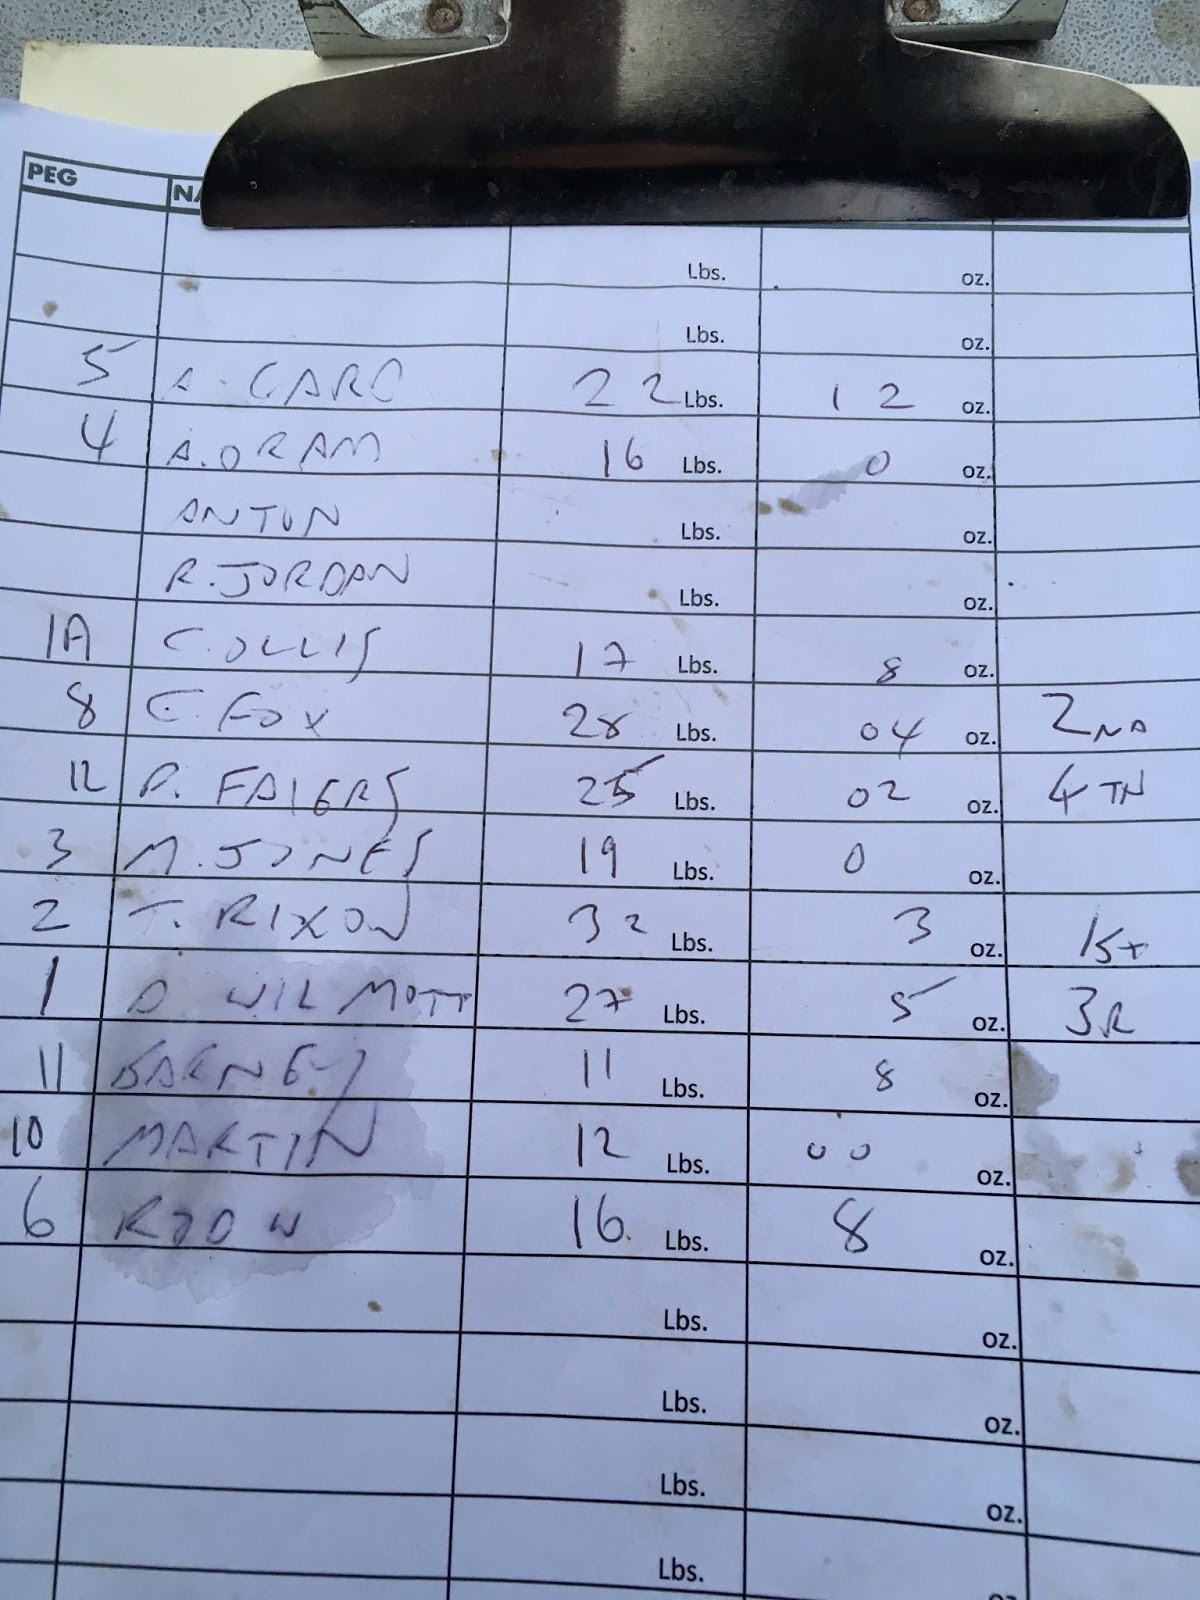 PEG NA
Lbs. oz.
Lbs. oz.
5 A. CARD 22 Lbs. 12 oz.
4 A. ORAM 16 Lbs. 0 oz.
ANTON Lbs. oz.
R. JORDAN Lbs. oz.
1A C. OLLIS 17 Lbs. 8 oz.
8 E. FOX 28 Lbs. 04 oz. 2ND
12 P. FAIERS 25 Lbs. 02 oz. 4TH
3 M. JONES 19 Lbs. 0 oz.
2 T. RIXON 32 Lbs. 3 oz. 1st
1 D WILMOTT 27 Lbs. 5 oz. 3R
11 BARNEY 11 Lbs. 8 oz.
10 MARTIN 12 Lbs. 00 oz.
6 16 Lbs. 8 oz.
Lbs. oz.
Lbs. oz.
Lbs. oz.
Lbs. oz.